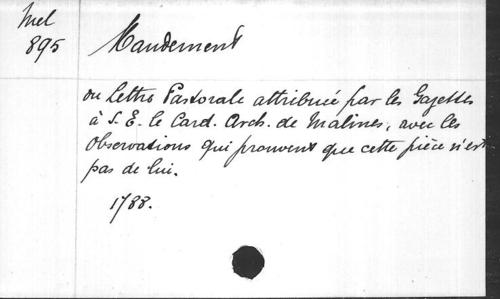 Mel
895
Mandement
ou Lettre Pastorale attribuée par les Gazettes
à S. E. le Card. Arch. de Malines, avec les
Observations qui prouvent que cette pièce n'est
pas de lui.
1788.